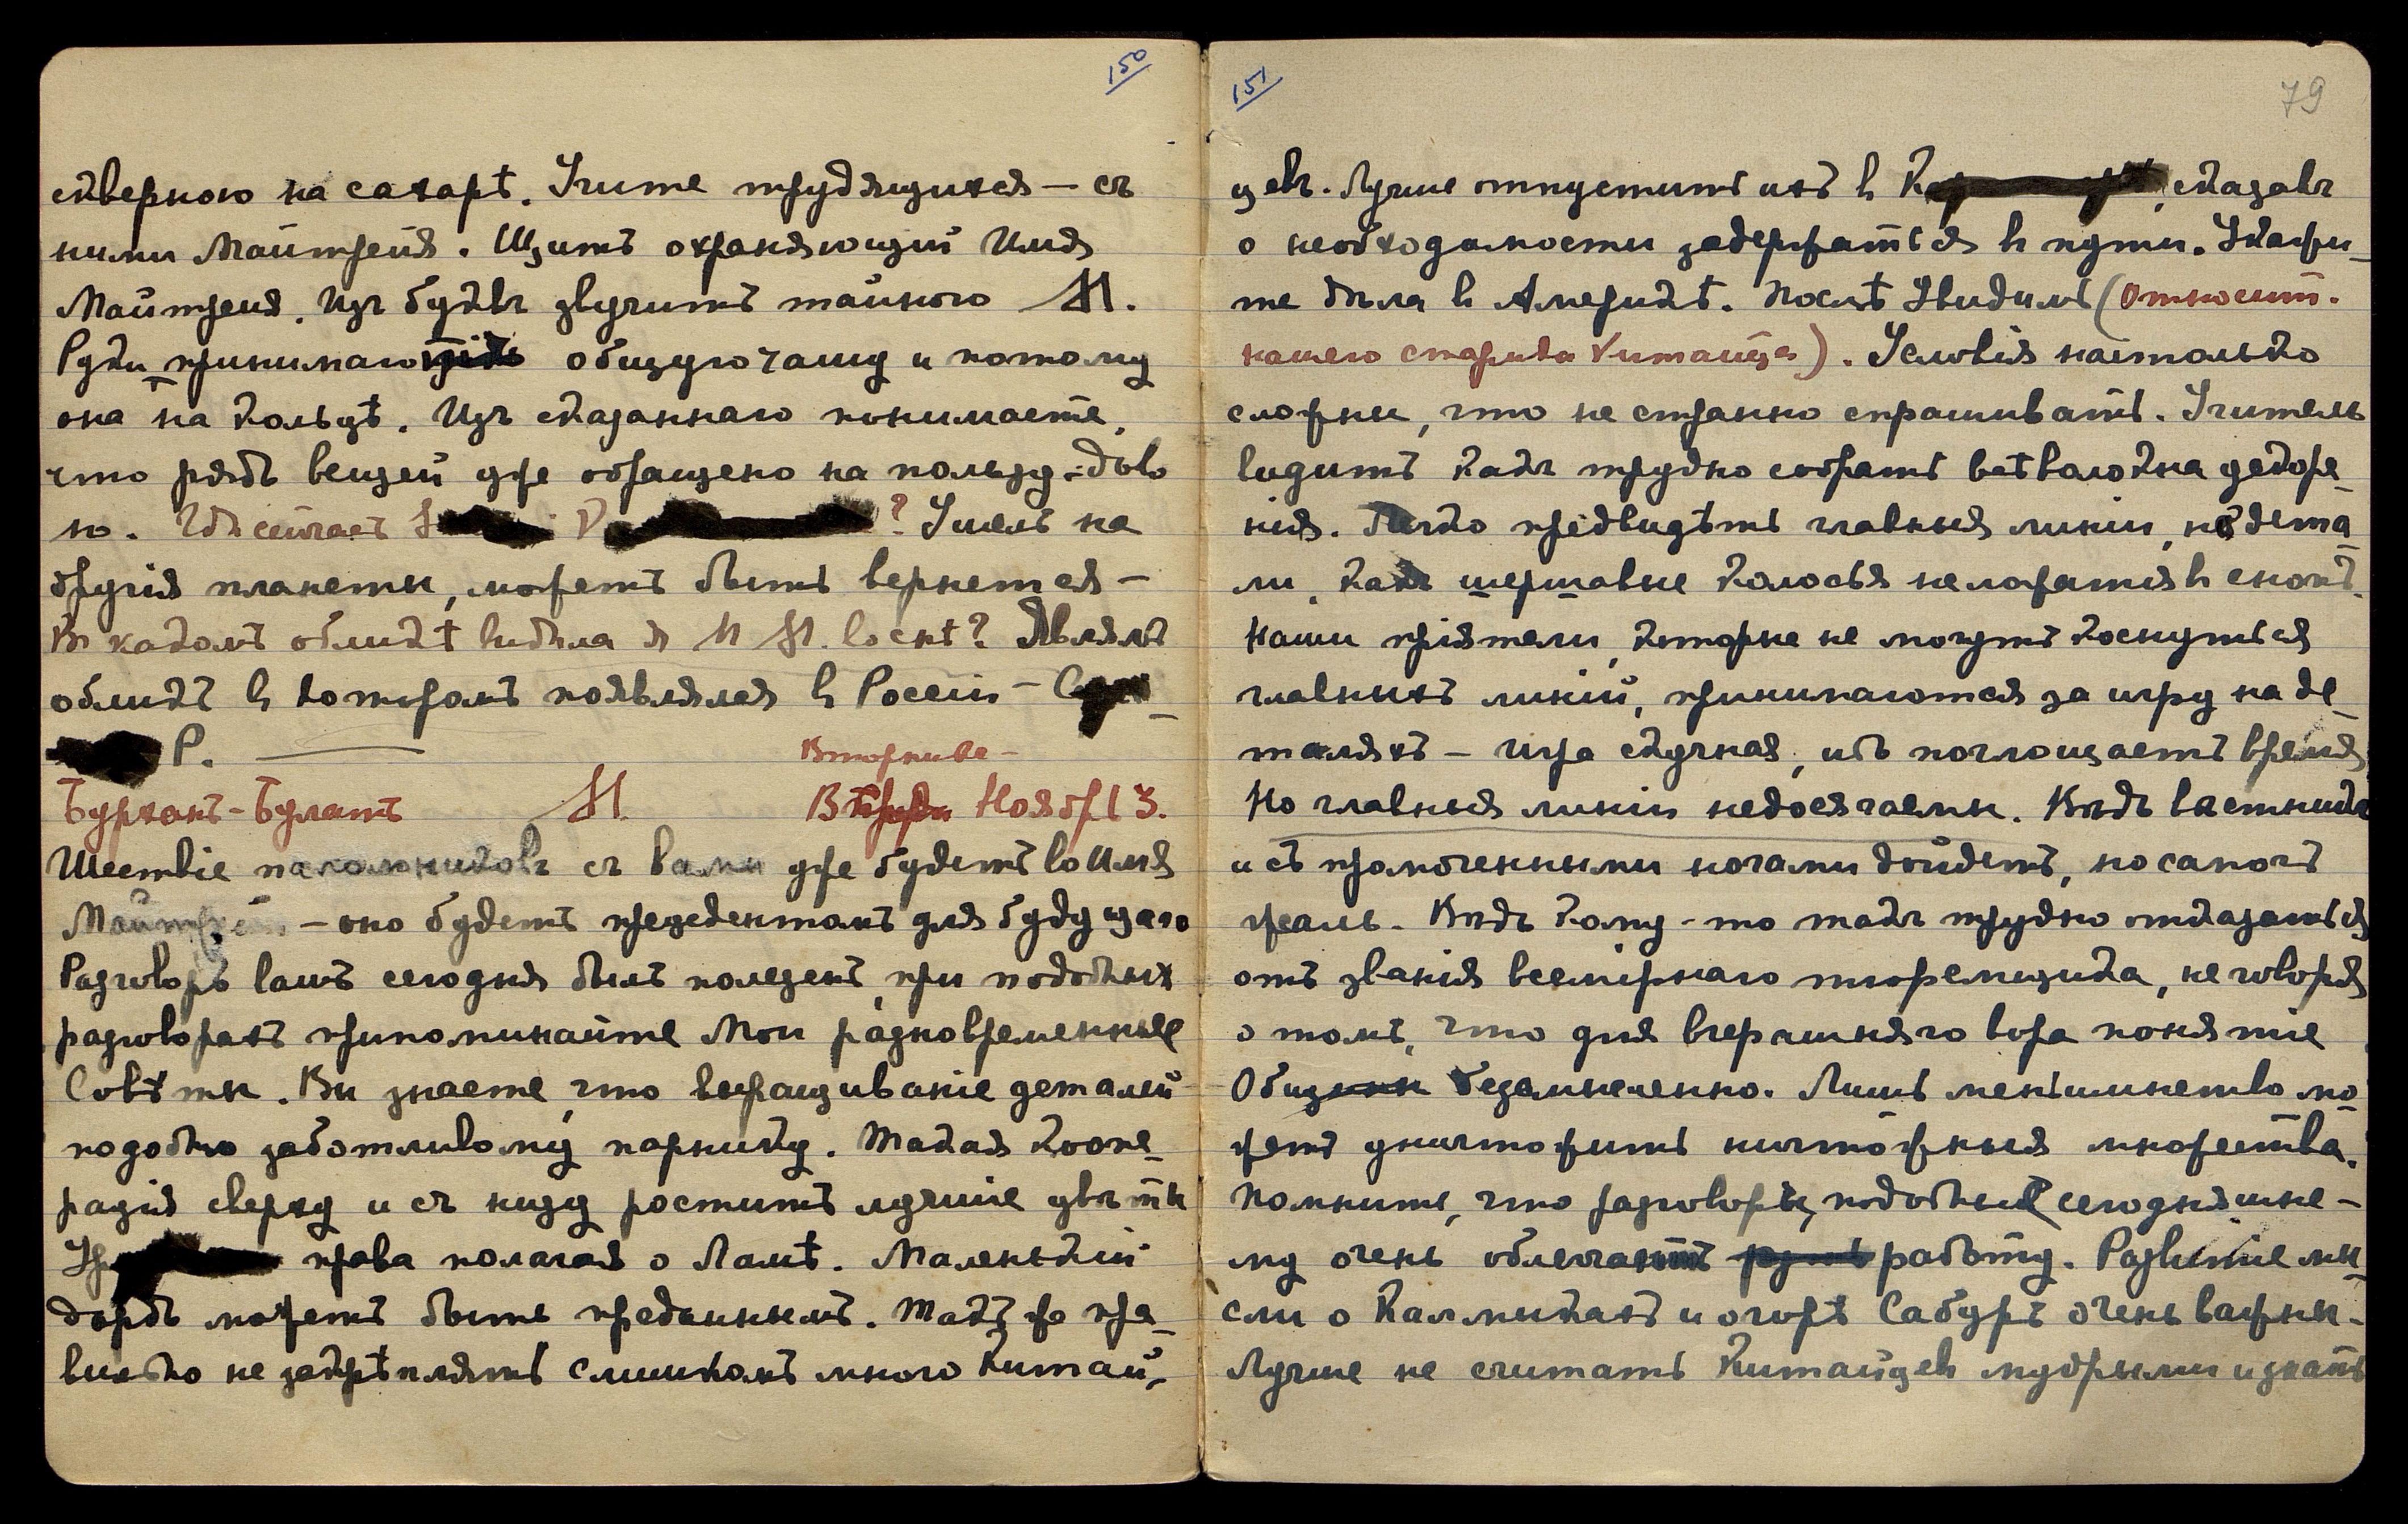 150
скверного на сахарѣ. Учите трудящихся — съ
ними Майтрейя. Щитъ охраняющий Имя
Майтрея. Изъ буквъ звучитъ тайного М.
Руки принимаю общую чашу и потому
она на кольцѣ. Изъ сказаннаго понимаете,
что рядъ вещей уже обращено на пользу - ново
но. Гдѣ сейчасъ ? Ушелъ на
другія планеты, можетъ быть вернется —
Въ какомъ обликѣ видѣла я М М. во снѣ? Являлъ
обликъ в котором появлялся в Россіи —
Р.
Вторникъ —
Бурханъ-Булатъ М. Ноябрь 3.
Шествіе паломниковъ съ вами уже будетъ во Имя
Майтрейи — оно будетъ прецедентомъ для будущаго
Разговоръ вашъ сегодня былъ полезенъ, при подобныхъ
разговорахъ припоминайте Мои разновременные
Совѣты. Вы знаете, что выращиваніе деталей
подобно заботливому парнику. Такая коопе-
рація сверху и съ низу роститъ лучшіе цвѣты
права полагая о Ламѣ. Маленькій
даръ можетъ быть преданнымъ. Такъ же пра-
вильно не закрѣплять слишкомъ много Китай-
151
79
цевъ. Лучше отпустить ихъ в сказавъ
о необходимости задержаться в пути. Укажи-
те дѣла в Америкѣ. Послѣ Увидимъ (Относит.
нашего старика Китайца). Условія настолько
сложны, что не странно спрашивать. Учитель
видитъ какъ трудно собрать всѣ волокна ускоре-
нія. Легко предвидѣть главныя линіи, но дета-
ли, какъ шершавые колосья не ложатся в снопъ.
Наши пріятели, которые не могутъ коснуться
главныхъ линій, принимаются за игру на де-
таляхъ — игра скучная, ибо поглощаетъ время
Но главныя линіи недосягаемы. Вѣдь вѣстникъ
и съ промоченными ногами дойдетъ, но сапогъ
жаль. Вѣдь кому-то такъ трудно отказаться
отъ званія всемірнаго тюремщика, не говоря
о томъ, что для вчерашняго вора понятіе
Общины безсмысленно. Лишь меньшинство мо-
жетъ уничтожить ничтожныя множества.
Помните, что разговоры, подобные сегодняшне-
му очень облегчаютъ работу. Развитіе мы-
сли о Калмыкахъ и о горѣ Сабуръ очень важны.
Лучше не считать Китайцев мудрыми и знать